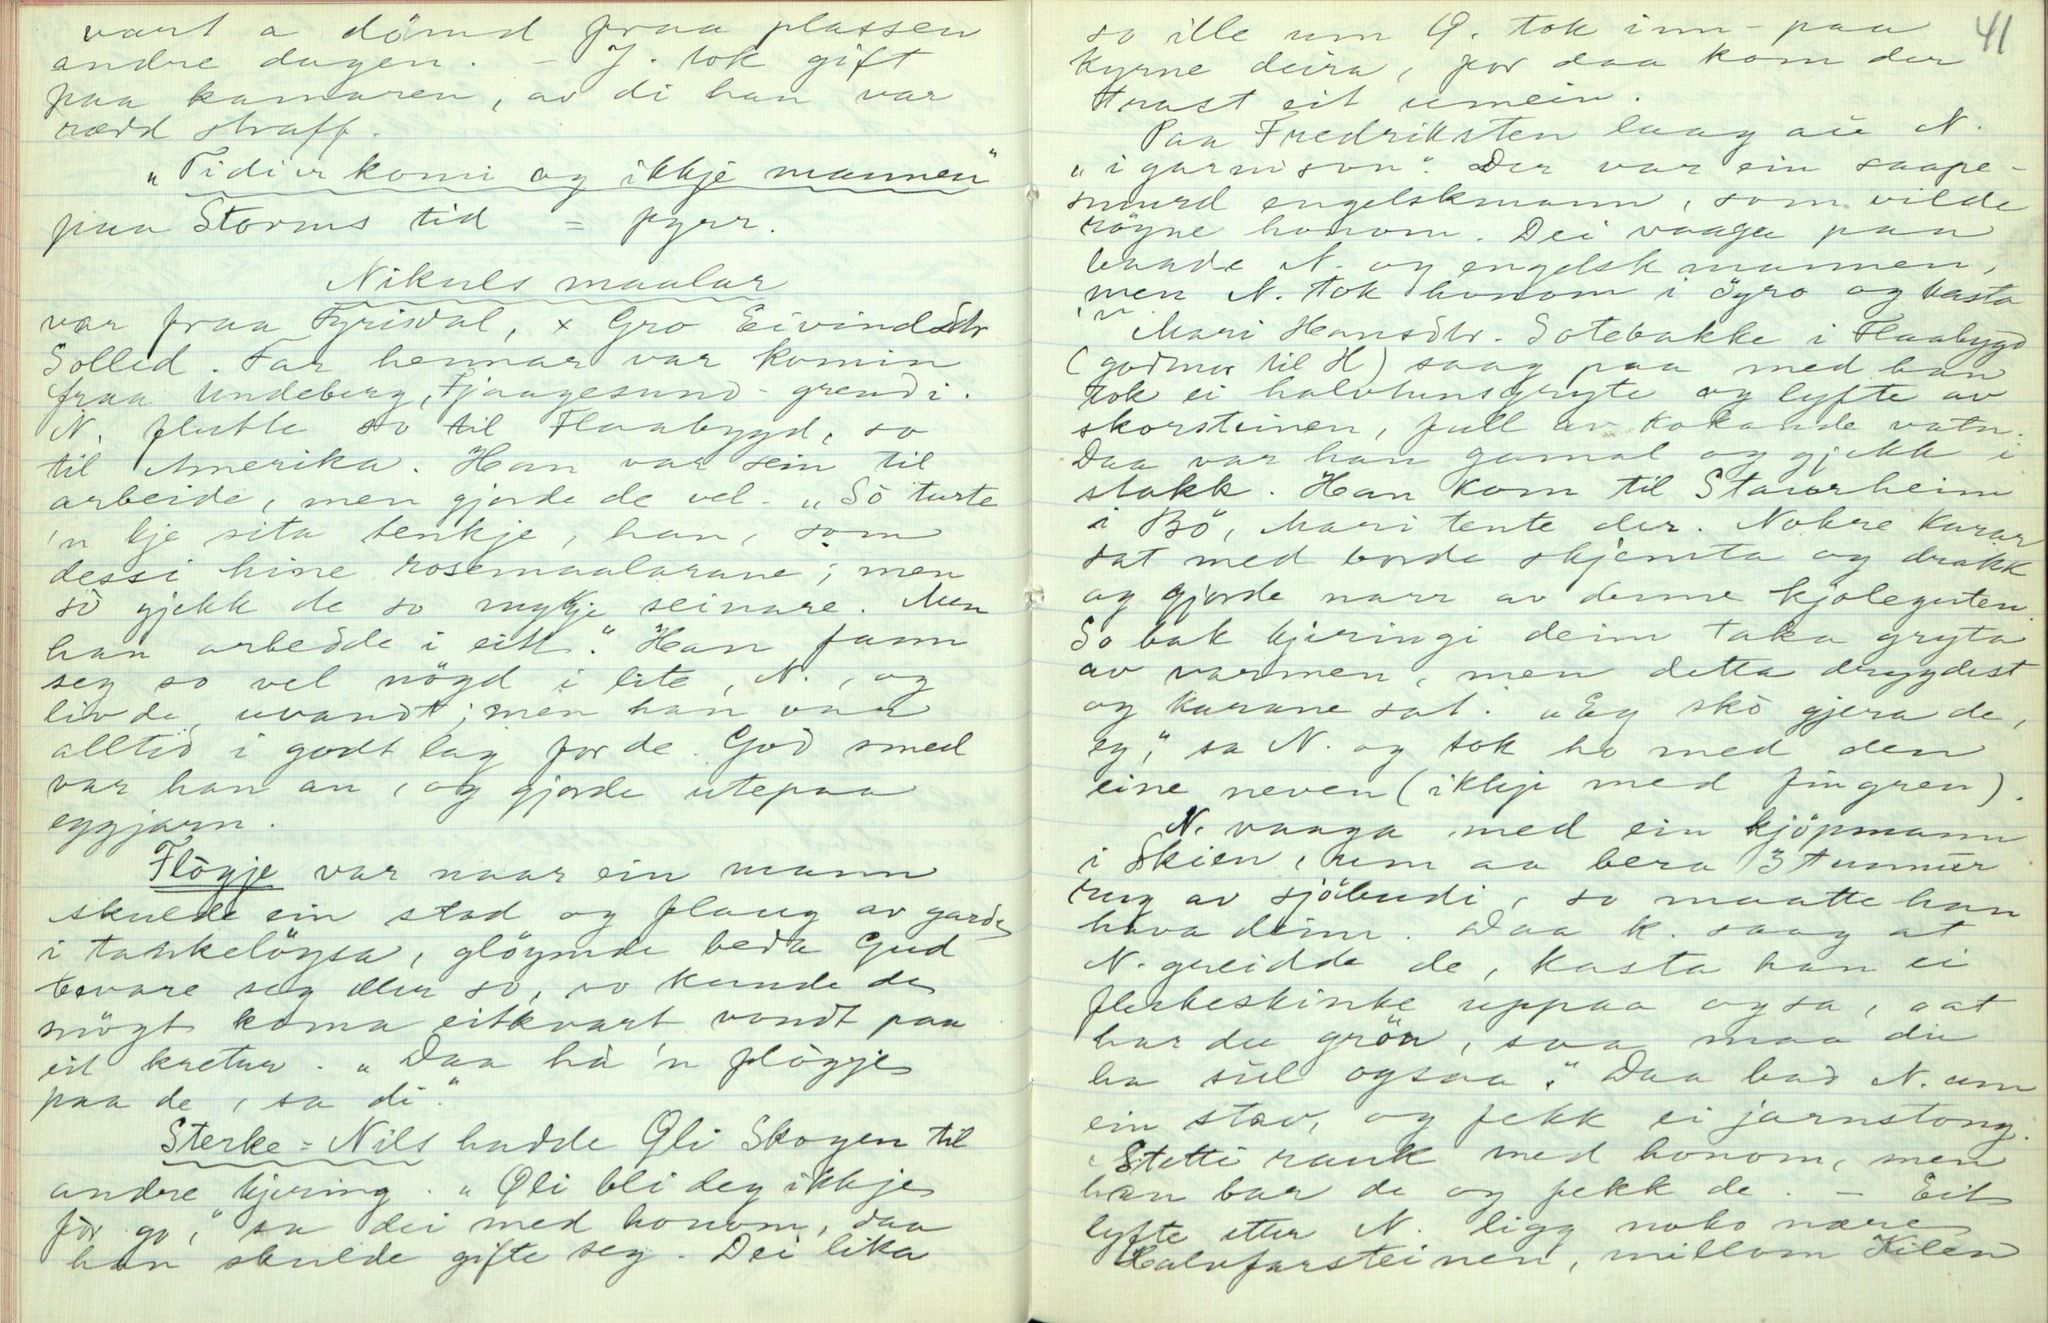 vart a dömd fraa plassen
andre dagen. – J. tok gift
paa kamaren, av di han var
rædd straff.
"Tidi er komi og ikkje mannen"
paa Storms tid = fyrr.
Nikuls maalar
var fraa Fyrisdal, x Gro Eivindsdtr
Solled. Far hennar var komin
fraa Undeberg, Fjaagesund-grendi.
N. flutte so til Flaabygd, so
til Amerika. Han var sein til
arbeide, men gjorde de vel. "Sò turte
'n kje sita tenkje, han, som
dessi hine rosemaalarane; men
sò gjekk de so mykje seinare. Men
han arbeidde i eitt." Han fann
seg so vel nögd i lite, N., og
livde uvandt; men han var
alltid i godt lag for de. God smed
var han au, og gjorde utepaa
eggjarn.
Flògje var naar ein mann
skulde ein stad og flaug av garde
i tankelöysa, glöymde beda Gud
bevare seg eller so, so kunde de
snögt koma eitkvart vondt paa
eit kretur. "Daa hà 'n flògje
paa de, sa di."
Sterke-Nils hadde Òli Skogen til
andre kjering. "Òli bli deg ikkje
fòr go," sa dei med honom, daa
han skulde gifte seg. Dei lika
41
so ille um O. tok inn-paa
kyrne deira, for daa kom der
trast eit umein.
Paa Fredriksten laag au N.
"i garnison". Der var ein saape-
smurd engelskmann, som vilde
röyne honom. Dei vaaga paa
baade N. og engelskmannen,
men N. tok honom i öyro og kasta
'n.
Mari Hansdtr. Sotebakke i Flaabygd
(godmor til H) saag paa med han
tok ei halvtunsgryte og lyfte av
skorsteinen, full av kokande vatn.
Daa var han gamal og gjekk i
stakk. Han kom til Staurheim
i Bö, Mari tente der. Nokre karar
sat med borde skjemta og drakk
og gjorde narr av denne kjoleguten.
So bad kjeringi deim taka gryta
av varmen, men detta drygdest
og karane sat. "Eg skò gjera de,
eg," sa N. og tok ho med den
eine neven (ikkje med fingren).
N. vaaga med ein kjöpmann
i Skien, um aa bera 3 tunnur
rug av sjöbudi, so maatte han
hava deim. Daa k. saag at
N. greidde de, kasta han ei
fleskeskinke uppaa ogsa, "at
har du grön, saa maa du
ha sul ogsaa." Daa bad N. um
ein stav, og fekk ei jarnstong.
Stetti rauk med honom, men
han bar de og fekk de. – Eit
lyfte etter N. ligg noko nære
Halvfarsteinen, millom Kilen